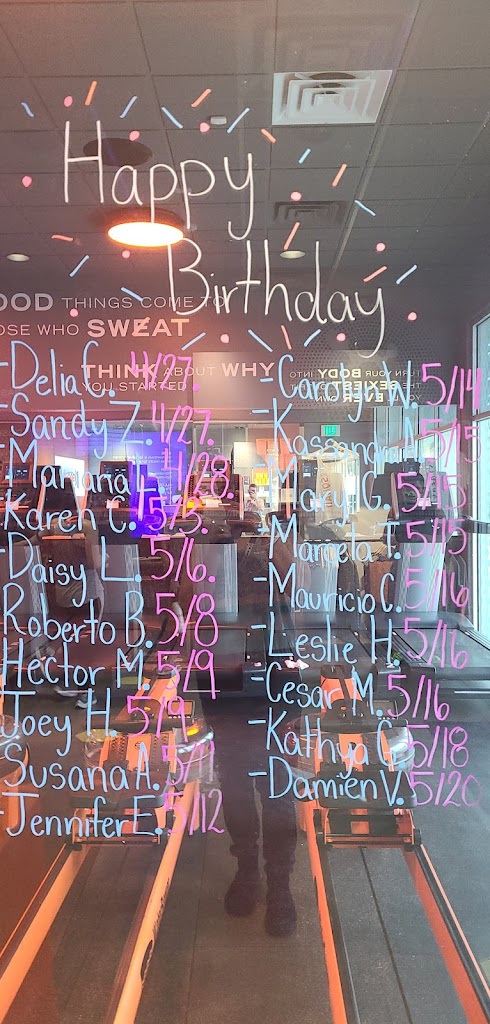 Happy
Birthday
OOD THINGS COME TO
OSE WHO SWEAT
THINK ABOUT WHY
YOU STARTED
TURN YOUR BODY INTO
THE SEXIEST
EVER
-Delia C. 4/27.
-Sandy Z. 4/27.
-Mariana L. 4/28.
-Karen C. 5/5.
-Daisy L. 5/6.
-Roberto B. 5/8
-Hector M. 5/9
-Joey H. 5/9
-Susana A. 5/11
-Jennifer E. 5/12
-Carolyn W. 5/14
-Kassandra A. 5/15
-Mary G. 5/15
-Marcela T. 5/15
-Mauricio C. 5/16
-Leslie H. 5/16
-Cesar M. 5/16
-Kathya G. 5/18
-Damien V. 5/20